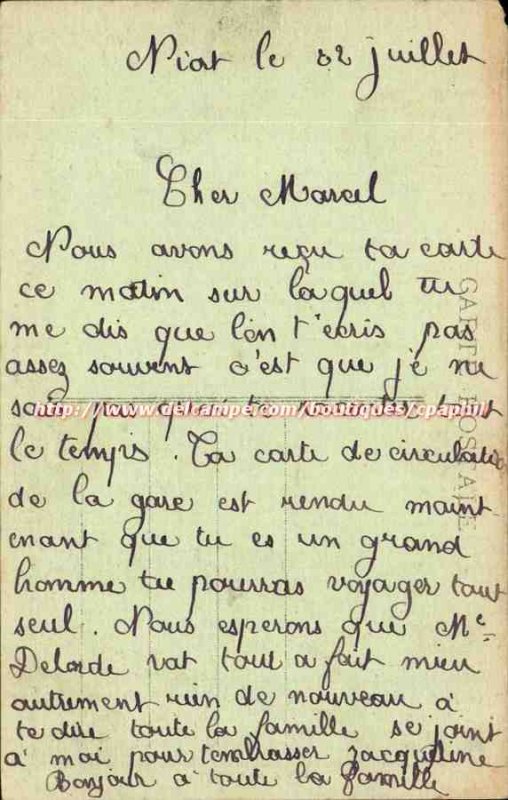 Niort le 22 juillet
Cher Marcel
Nous avons reçu ta carte
ce matin sur laquel tu
me dis que l'on t'ecris pas
assez souvent c'est que je ne
sais pas quoi te raconter tout
http://www.delcampe.com/boutiques/cpaphil
le temps. Ta carte de circulatio
de la gare est rendu maint
enant que tu es un grand
homme tu pourras voyager tout
seul. Nous esperons que Me
Delorde vat tout a fait mieu
autrement rien de nouveau à
te dire toute la famille se joint
à moi pour tembrasser Jacqueline
Bonjour a toute la famille
CARTE POSTALE